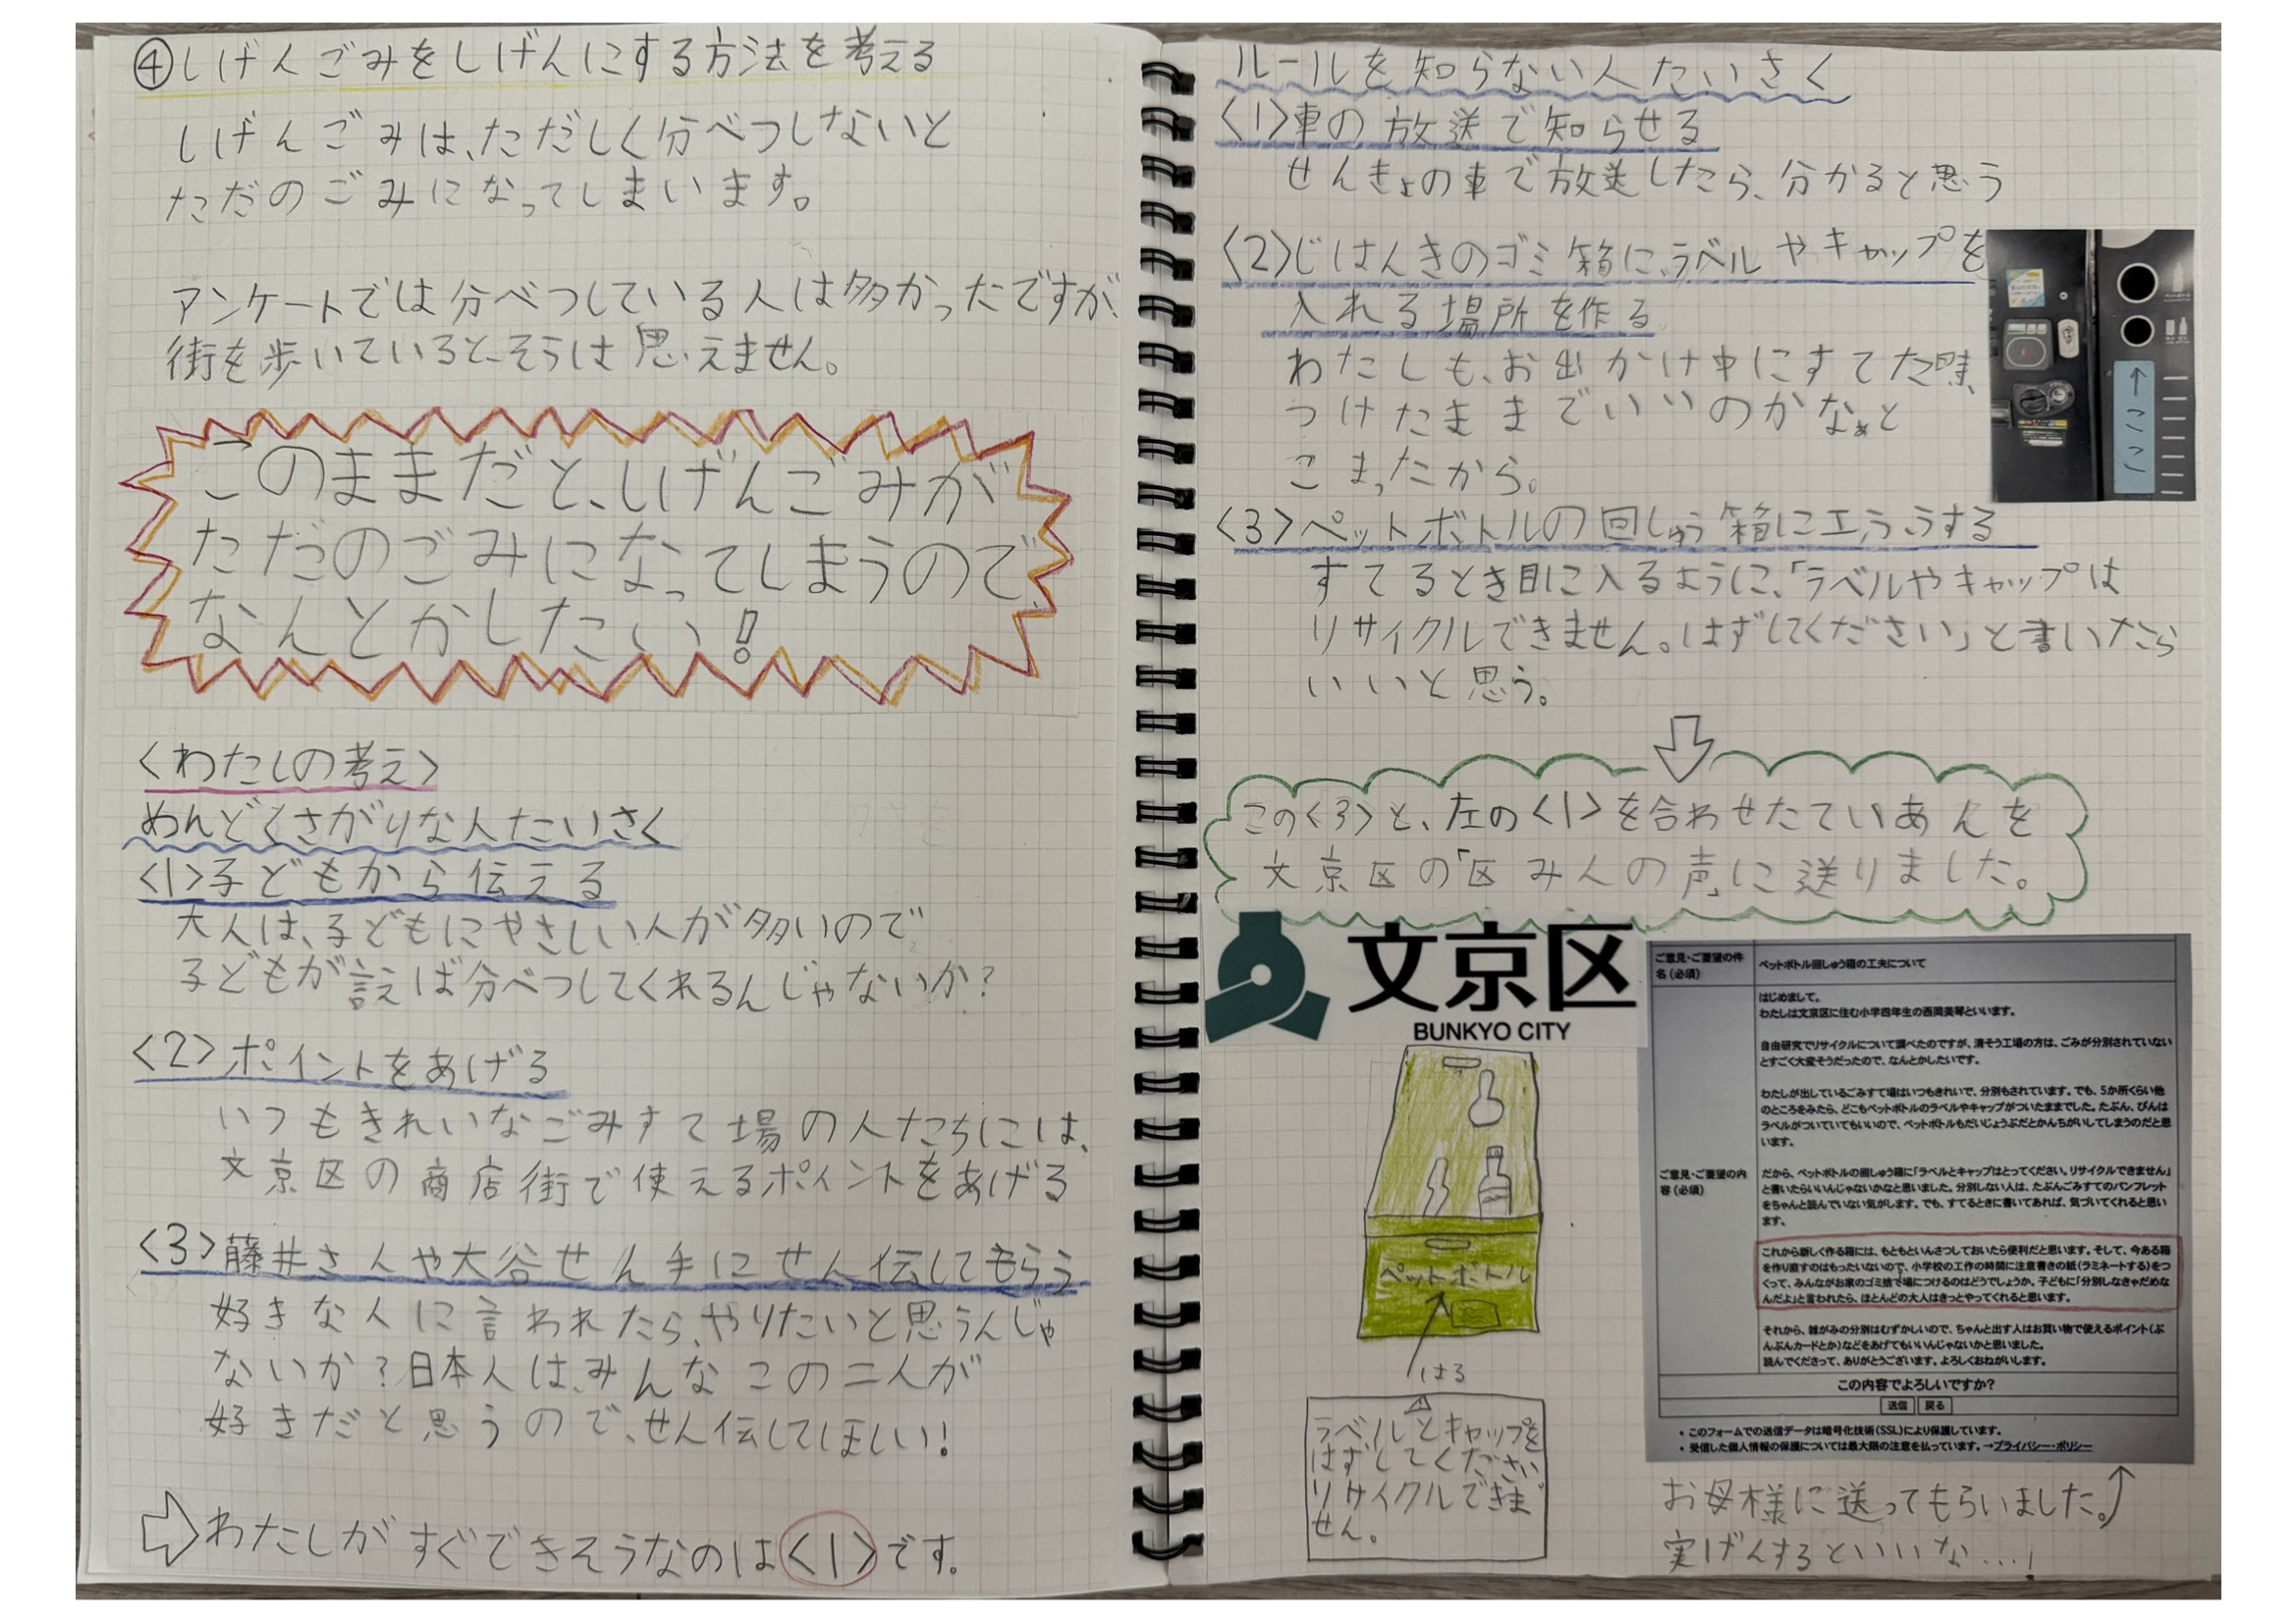 ④しげんごみをしげんにする方法を考える
しげんごみは、ただしく分べつしないと
ただのごみになってしまいます。
アンケートでは分べつしている人は多かったですが、
街を歩いていると、そうは思えません。
このままだと、しげんごみが
ただのごみになってしまうので、
なんとかしたい!
<わたしの考え>
めんどくさがりな人たいさく
<1>子どもから伝える
大人は、子どもにやさしい人が多いので
子どもが言えば分べつしてくれるんじゃないか?
<2>ポイントをあげる
いつもきれいなごみすて場の人たちには、
文京区の商店街で使えるポイントをあげる
<3>藤井さんや大谷せん手にせん伝してもらう
好きな人に言われたら、やりたいと思うんじゃ
ないか?日本人は、みんなこの二人が
好きだと思うので、せん伝してほしい!
⇨わたしがすぐできそうなのは<1>です。
ルールを知らない人たいさく
<1>車の放送で知らせる
せんきょの車で放送したら、分かると思う
<2>じはんきのゴミ箱に、ラベルやキャップを
入れる場所を作る
わたしも、お出かけ中にすてた時、
つけたままでいいのかなぁと
こまったから。
↑ここ
<3>ペットボトルの回しゅう箱にエふうする
すてるとき目に入るように、「ラベルやキャップは
リサイクルできません。はずしてください」と書いたら
いいと思う。
この<3>と、左の<1>を合わせたていあんを
文京区の「区みんの声」に送りました。
文京区
BUNKYO CITY
ペットボトル
はる
ラベルとキャップを
はずしてください
リサイクルできま
せん。
ご意見・ご要望の件
名(必須)
ペットボトル回しゅう箱の工夫について
ご意見・ご要望の内
容(必須)
はじめまして。
わたしは文京区に住む小学四年生の西岡美琴といいます。
自由研究でリサイクルについて調べたのですが、清そう工場の方は、ごみが分別されていない
とすごく大変そうだったので、なんとかしたいです。
わたしが出しているごみすて場はいつもきれいで、分別もされています。でも、5か所くらい他
のところをみたら、どこもペットボトルのラベルやキャップがついたままでした。たぶん、びんは
ラベルがついていてもいいので、ペットボトルもだいじょうぶだとかんちがいしてしまうのだと思
います。
だから、ペットボトルの回しゅう箱に「ラベルとキャップはとってください。リサイクルできません」
と書いたらいいんじゃないかなと思いました。分別しない人は、たぶんごみすてのパンフレット
をちゃんと読んでいない気がします。でも、すてるときに書いてあれば、気づいてくれると思い
ます。
これから新しく作る箱には、もともといんさつしておいたら便利だと思います。そして、今ある箱
を作り直すのはもったいないので、小学校の工作の時間に注意書きの紙(ラミネートする)をつ
くって、みんながお家のゴミ捨て場につけるのはどうでしょうか。子どもに「分別しなきゃだめな
んだよ」と言われたら、ほとんどの大人はきっとやってくれると思います。
それから、雑がみの分別はむずかしいので、ちゃんと出す人はお買い物で使えるポイント(ぶ
んぶんカードとか)などをあげてもいいんじゃないかと思いました。
読んでくださって、ありがとうございます。よろしくおねがいします。
この内容でよろしいですか?
送信 戻る
• このフォームでの送信データは暗号化技術(SSL)により保護しています。
• 受信した個人情報の保護については最大限の注意を払っています。→プライバシー・ポリシー
お母様に送ってもらいました。
実げんするといいな…!